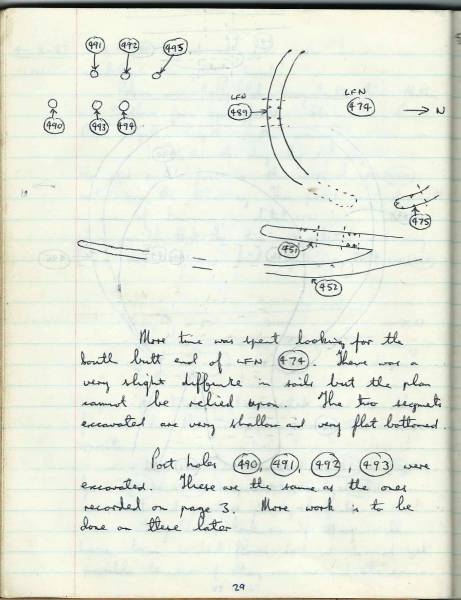 491 492 495
LFN LFN
489 474 → N
490 493 494
475
451
452
More time was spent looking for the
South butt end of LFN 474. There was a
very slight diffrence in soils but the plan
cannot be relied upon. The two segments
excavated are very shallow and very flat bottomed.
Post holes 490, 491, 492, 493 were
excavated. These are the same as the ones
recorded on page 3. More work is to be
done on these later
29